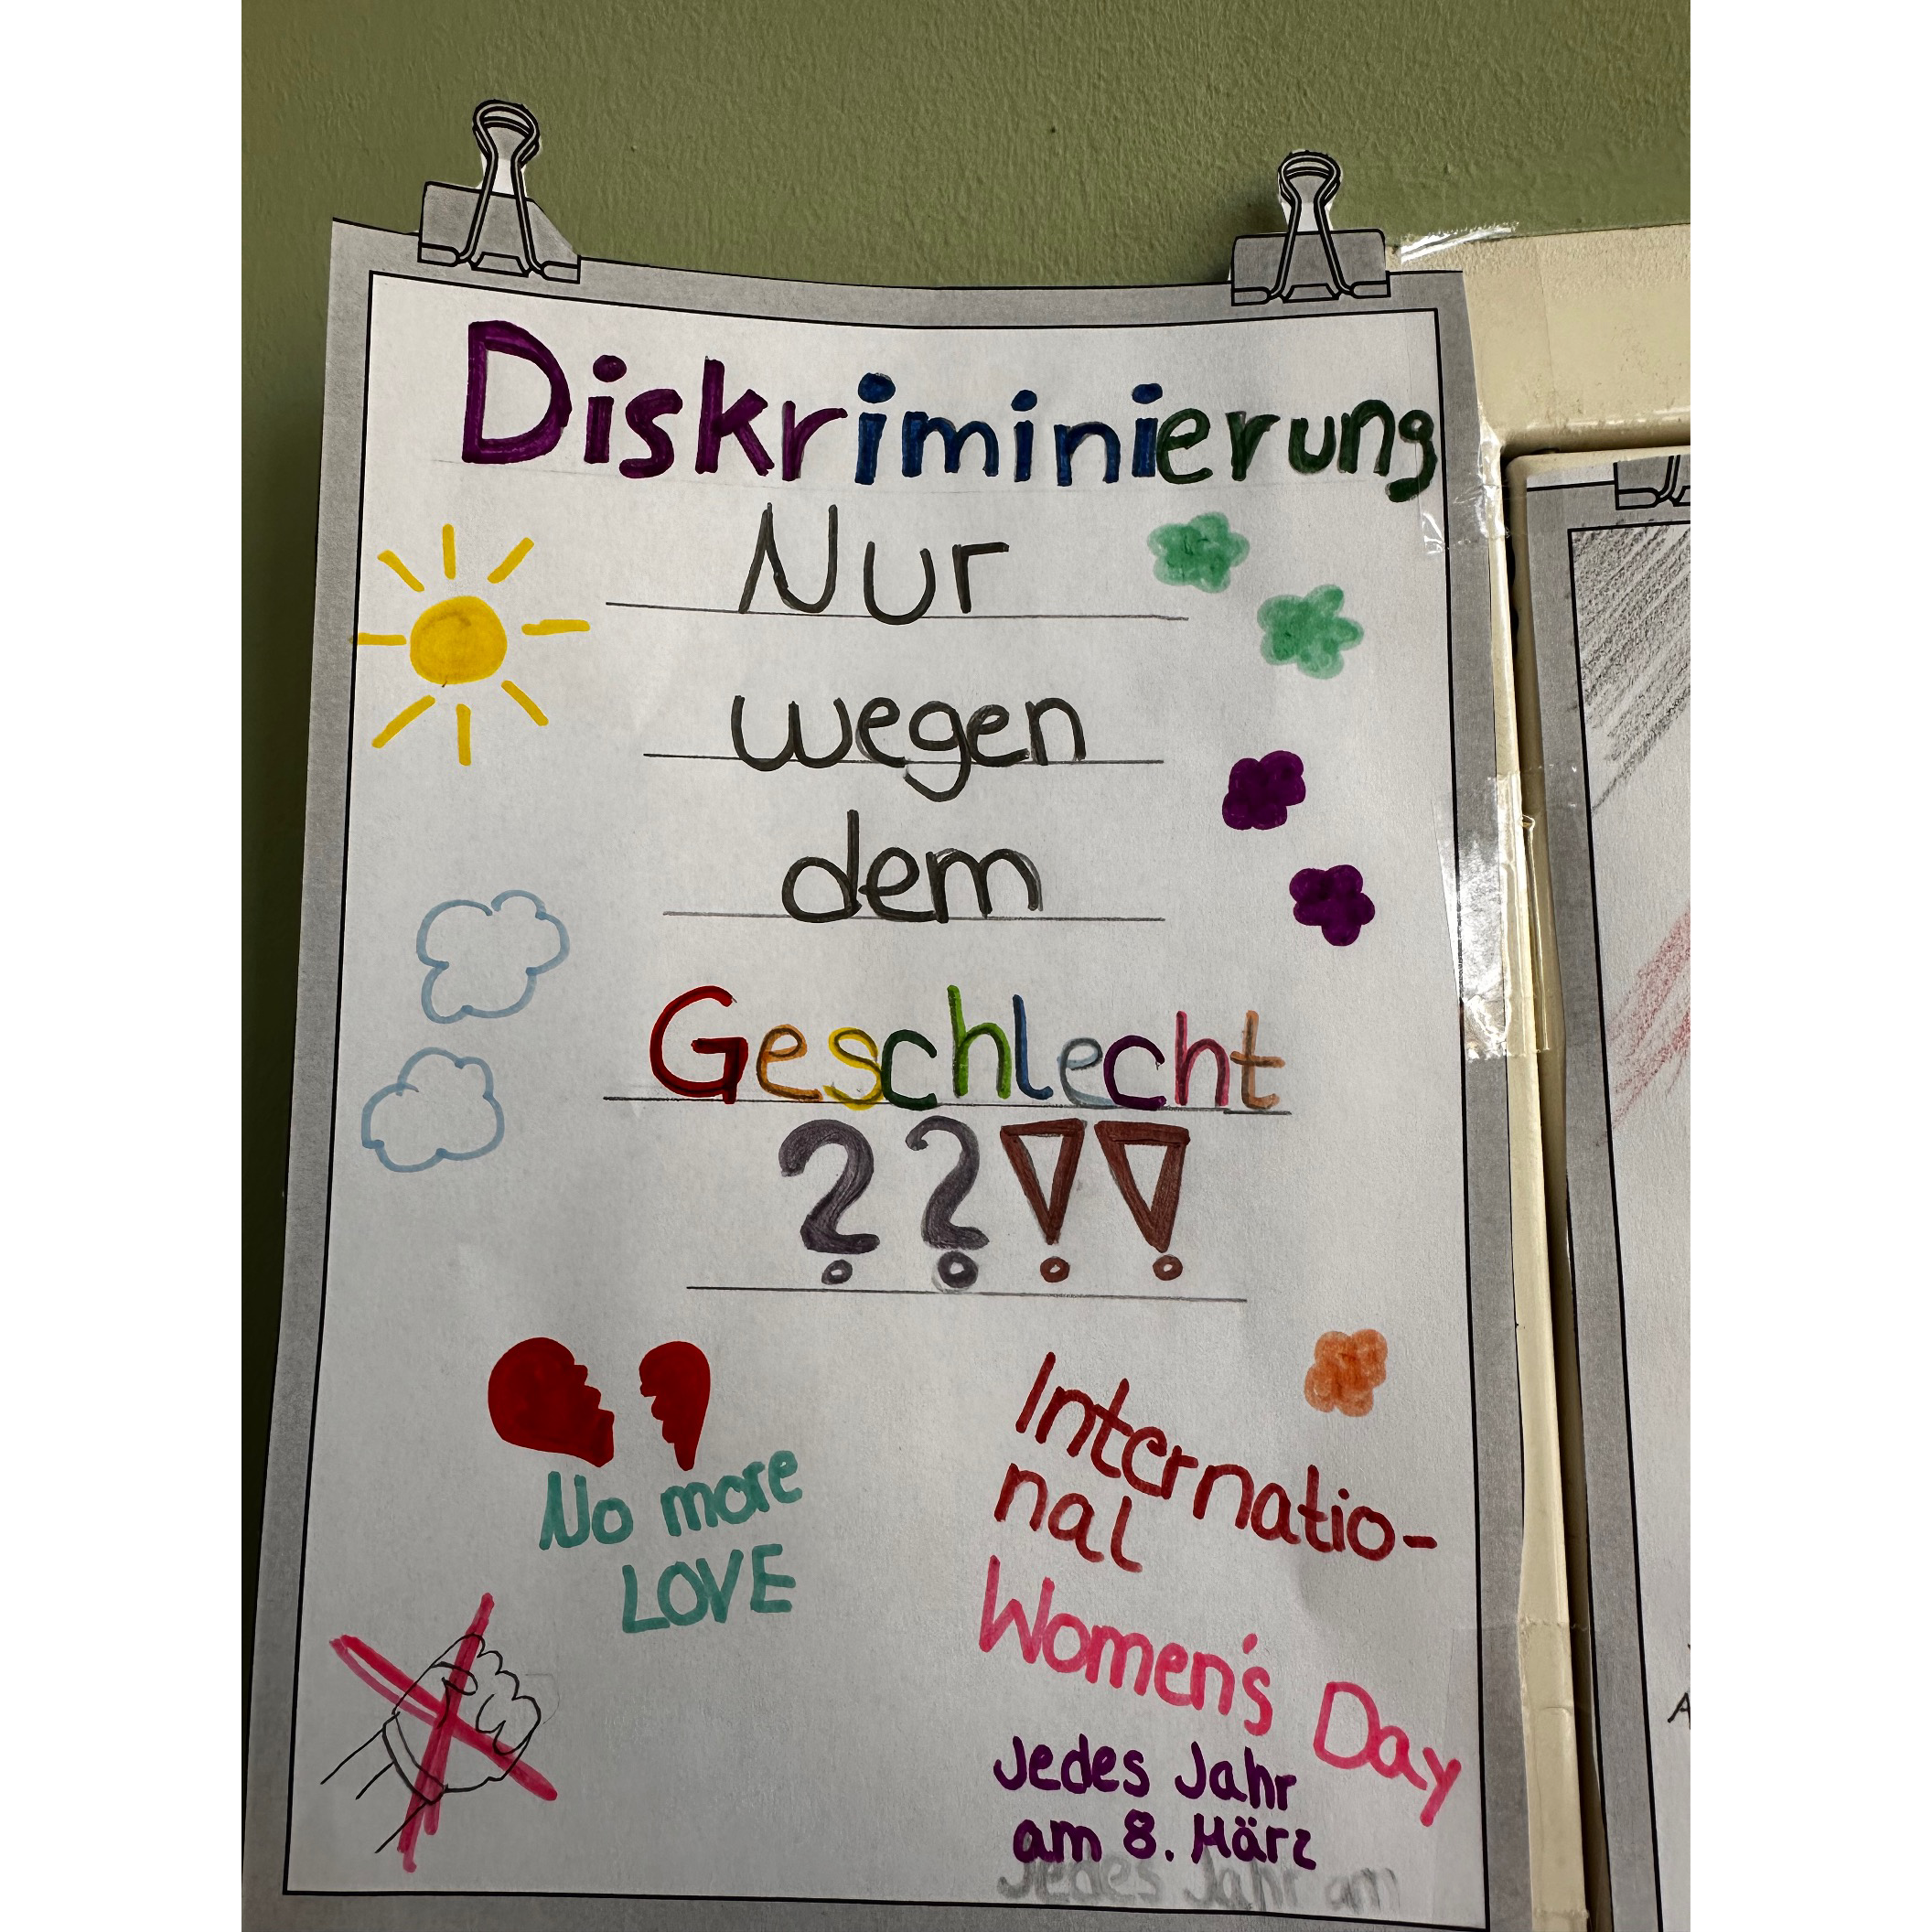 Diskriminierung
Nur
wegen
dem
Geschlecht
??!!
No more
LOVE
Internatio-
nal
Women's Day
Jedes Jahr
am 8. März
Jedes Jahr am
A